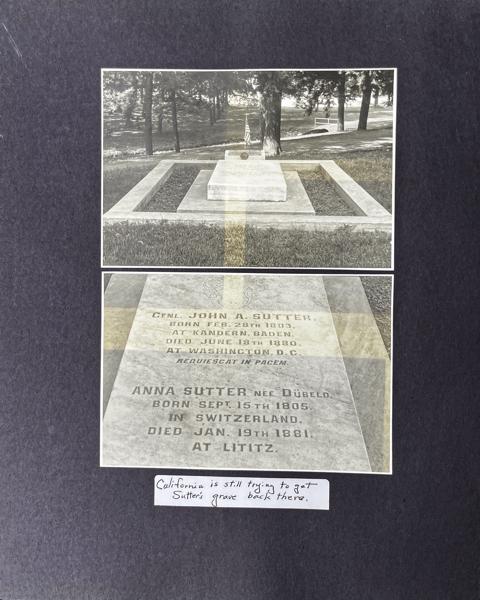 GENL. JOHN A. SUTTER,
BORN FEB. 28TH 1803,
AT KANDERN, BADEN,
DIED JUNE 18TH 1880,
AT WASHINGTON, D.C.
REQUIESCAT IN PACEM.
ANNA SUTTER NEE DÜBELD,
BORN SEPT. 15TH 1805,
IN SWITZERLAND,
DIED JAN. 19TH 1881,
AT LITITZ.
California is still trying to get
Sutter's grave back there.